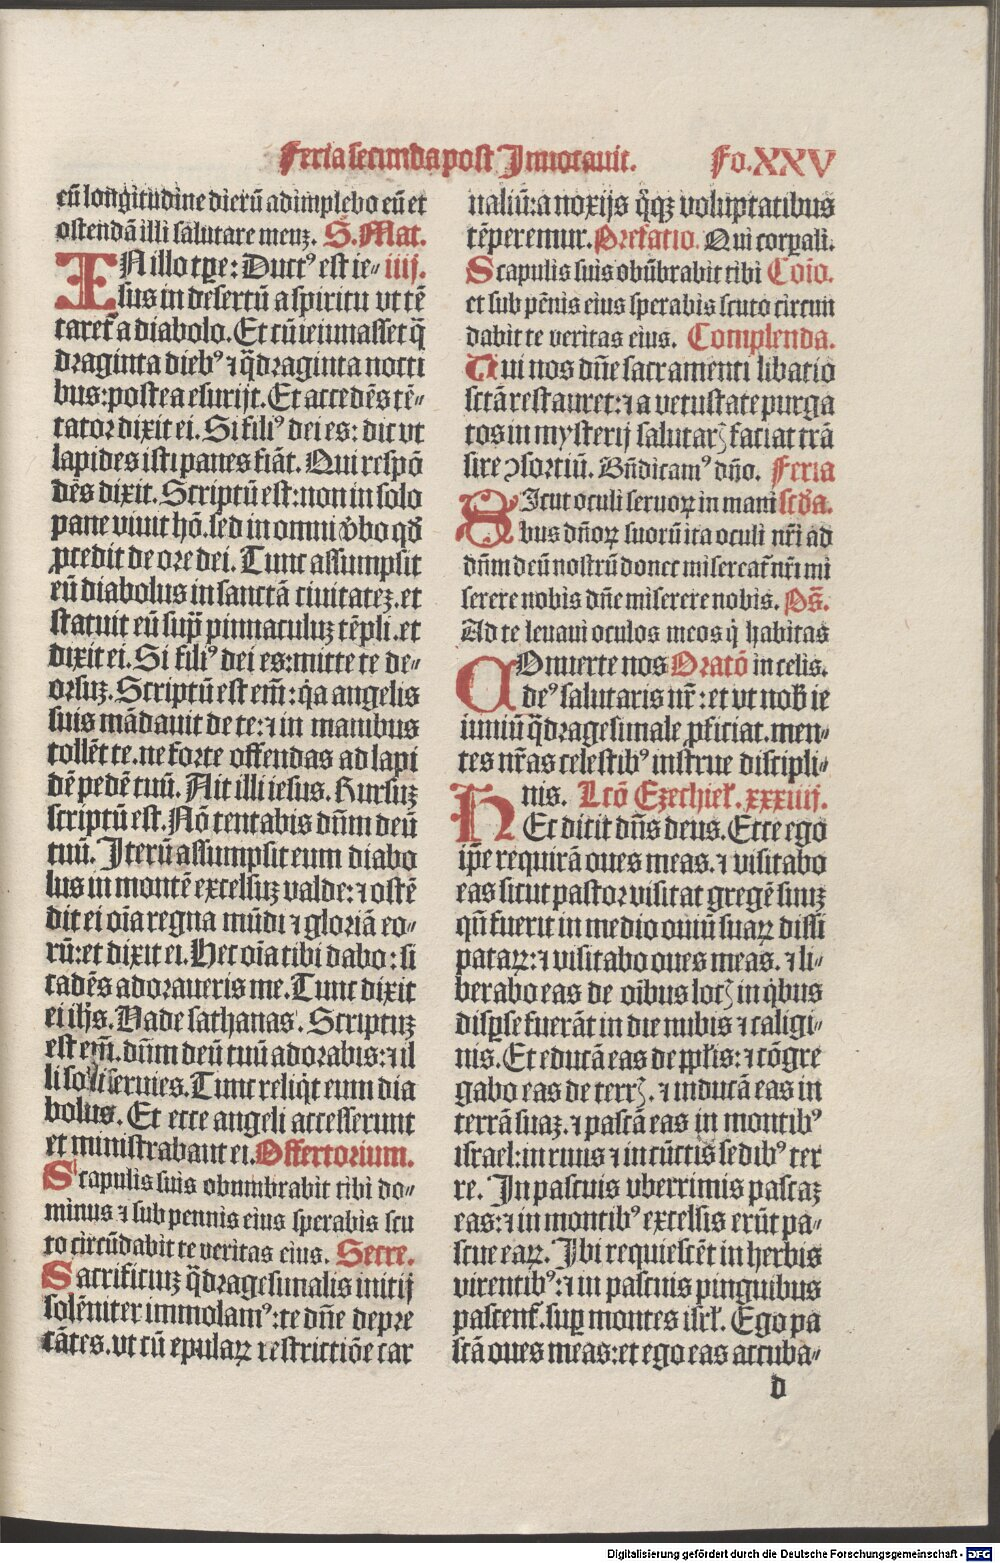 Feria secunda post Inuocauit. Fo. XXV
eū longitudine dierū adimplebo eū et
ostendā illi salutare meuꝫ. S. Mat.
IN illo tꝑe: Duct⁹ est ie- iiij.
sus in desertū a spiritu vt tē
taret̄ a diabolo. Et cū ieiunasset q̄
draginta dieb⁹ ⁊ q̄draginta nocti
bus: postea esurijt. Et accedēs tē-
tator dixit ei. Si fili⁹ dei es: dic vt
lapides isti panes fiāt. Qui respō
dēs dixit. Scriptū est: non in solo
pane viuit hō. sed in omni v̄bo qd̄
ꝓcedit de ore dei. Tunc assumpsit
eū diabolus in sanctā ciuitateꝫ. et
statuit eū sup̄ pinnaculuꝫ tēpli. et
dixit ei. Si fili⁹ dei es: mitte te de-
orsuꝫ. Scriptū est em̄: q̇a angelis
suis mādauit de te: ⁊ in manibus
tollēt te. ne forte offendas ad lapi
dē pedē tuū. Ait illi iesus. Rursuꝫ
scriptū est. Nō tentabis dn̄m deū
tuū. Iterū assumpsit eum diabo
lus in montē excelsuꝫ valde: ⁊ ostē
dit ei oīa regna mūdi ⁊ gloriā eo-
rū: et dixit ei. Hec oīa tibi dabo: si
cadēs adoraueris me. Tunc dixit
ei ih̄s. Vade sathanas. Scriptuꝫ
est em̄. dn̄m deū tuū adorabis: ⁊ il
li soli seruies. Tunc reliq̇t eum dia
bolus. Et ecce angeli accesserunt
et ministrabant ei. Offertorium.
Scapulis suis obumbrabit tibi do-
minus ⁊ sub pennis eius sperabis scu
to circūdabit te veritas eius. Secre.
Sacrificiuꝫ q̄dragesimalis initij
solēniter immolam⁹: te dn̄e depre
cātes. vt cū epulaꝝ restrictiōe car
naliū: a noxijs q̄qꝫ voluptatibus
tēperemur. Prefatio. Qui corꝑali.
Scapulis suis obūbrabit tibi Coīo.
et sub pēnis eius sperabis scuto circun
dabit te veritas eius. Complenda.
Qui nos dn̄e sacramenti libatio
sctā restauret: ⁊ a vetustate purga
tos in mysterij salutarꝭ faciat trā
sire ꝯsortiū. Bn̄dicam⁹ dn̄o. Feria
Sicut oculi seruoꝝ in mani scd̄a.
bus dn̄oꝝ suorū ita oculi nr̄i ad
dn̄m deū nostrū donec misereat̄ nr̄i mi
serere nobis dn̄e miserere nobis. Ps̄.
Ad te leuaui oculos meos q̇ habitas
COnuerte nos Oratō in celis.
de⁹ salutaris nr̄: et vt nob̄ ie
iuniū q̄dragesimale ꝓficiat. men-
tes nr̄as celestib⁹ instrue discipli-
nis. Lcō Ezechieł. xxxiiij.
HEc dicit dn̄s deus. Ecce ego
ip̄e requirā oues meas. ⁊ visitabo
eas sicut pastor visitat gregē suuꝫ
qn̄ fuerit in medio ouiū suaꝝ dissi
pataꝝ: ⁊ visitabo oues meas. ⁊ li-
berabo eas de oībus locꝭ in q̇bus
disꝑse fuerāt in die nubis ⁊ caligi-
nis. Et educā eas de ppłis: ⁊ cōgre
gabo eas de terrꝭ. ⁊ inducā eas in
terrā suaꝫ. ⁊ pascā eas in montib⁹
israel: in riuis ⁊ in cūctis sedib⁹ ter
re. In pascuis vberrimis pascaꝫ
eas: ⁊ in montib⁹ excelsis erūt pa-
scue eaꝝ. Ibi requiescēt in herbis
virentib⁹: ⁊ in pascuis pinguibus
pascent̄. suꝑ montes isrł. Ego pa
scā oues meas: et ego eas accuba-
d
Digitalisierung gefördert durch die Deutsche Forschungsgemeinschaft - DFG